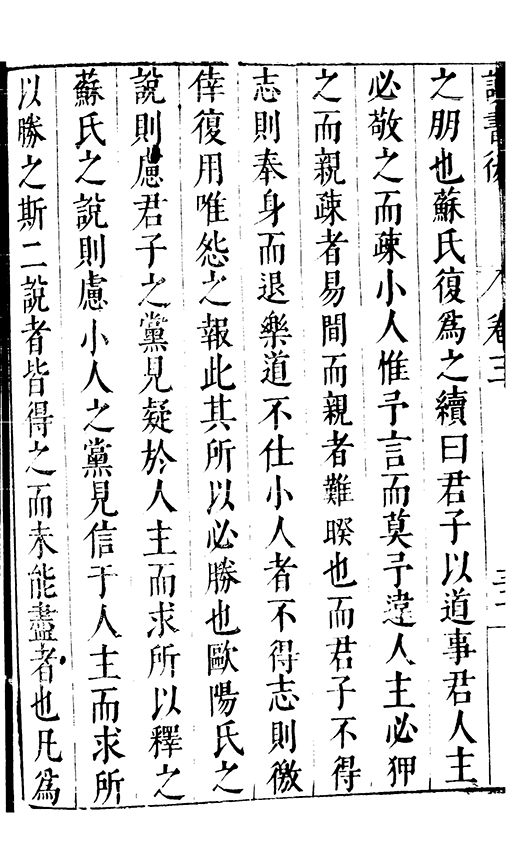 讀書後 卷三
之朋也蘇氏復爲之續曰君子以道事君人主
必敬之而疎小人惟予言而莫予違人主必狎
之而親疎者易間而親者難暌也而君子不得
志則奉身而退樂道不仕小人者不得志則徼
倖復用唯怨之報此其所以必勝也歐陽氏之
說則慮君子之黨見疑於人主而求所以釋之
蘇氏之說則慮小人之黨見信于人主而求所
以勝之斯二說者皆得之而未能盡者也凡爲